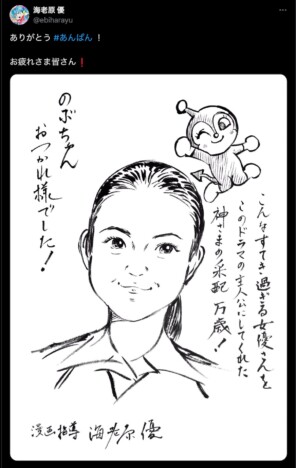 海老原 優
@ebiharayu
ありがとう #あんぱん ！
お疲れさま皆さん❗
のぶちゃん
おつかれ様でした！
こんなすてき過ぎる女優さんを
このドラマの主人公にしてくれた
神さまの采配 万歳！
漫画指導 海老原 優